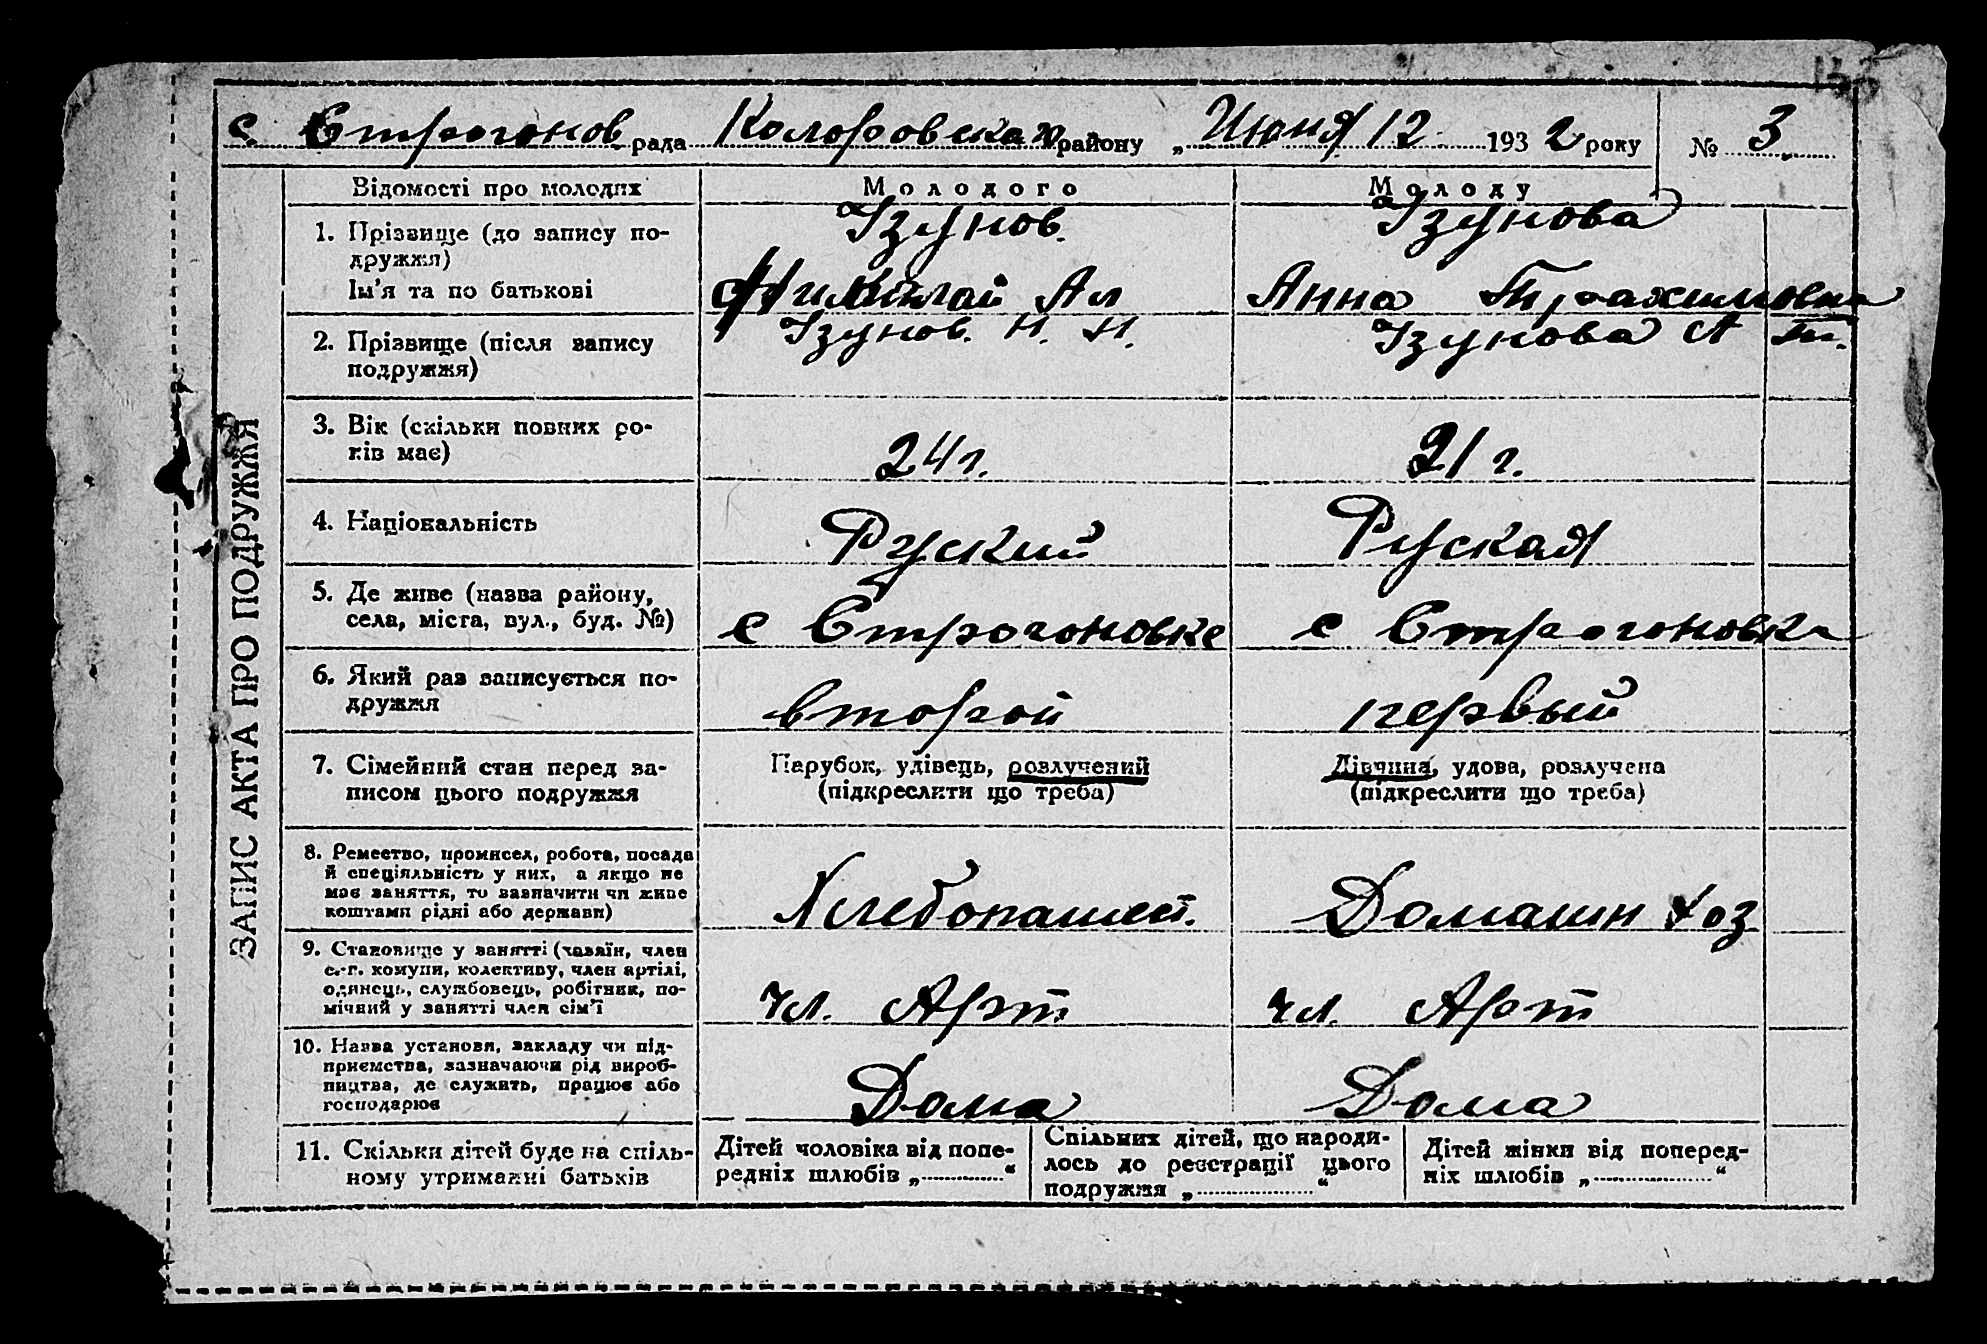 с. Строгонов рада Коларовская району „ Июня 12 1932 року № 3
Відомості про молодих Молодого Молоду
1. Прізвище (до запису по-
дружжя) Ізунов. Ізунова
Ім'я та по батькові Николай Ал Анна
2. Прізвище (після запису
подружжя) Ізунов. Н. Н. Ізунова А Т.
3. Вік (скільки повних ро-
ків має) 24 г. 21 г.
4. Національність Руский Руская
5. Де живе (назва району,
села, міста, вул., буд. №) с Строгоновке с Строгоновке
6. Який раз записується по-
дружжя второй первый
7. Сімейний стан перед за-
писом цього подружжя
Парубок, удівець, розлучений
(підкреслити що треба)
Дівчина, удова, розлучена
(підкреслити що треба)
8. Ремество, промисел, робота, посада
й спеціяльність у них, а якщо не
має заняття, то зазначити чи живе
коштами рідні або держави) Хлебопашец. Домашн хоз
9. Становище у занятті (хазяїн, член
с.-г. комуни, колективу, член артілі,
одинець, службовець, робітник, по-
мічний у занятті член сім'ї чл. Арт чл. Арт
10. Назва установи, закладу чи під-
приємства, зазначаючи рід вироб-
ництва, де служить, працює або
господарює Дома Дома
11. Скільки дітей буде на спіль-
ному утриманні батьків
Дітей чоловіка від попе-
редніх шлюбів „ “
Спільних дітей, що народи-
лось до реєстрації цього
подружжя „ “
Дітей жінки від поперед-
ніх шлюбів „ “
ЗАПИС АКТА ПРО ПОДРУЖЖЯ